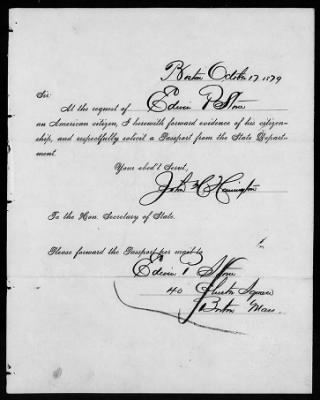 Boston October 17 1879
Sir:
At the request of Edwin P. Stone
an American citizen, I herewith forward evidence of his citizen-
ship, and respectfully solicit a Passport from the State Depart-
ment.
Your obed't Servt,
John H.
To the Hon. Secretary of State.
Please forward the Passport per mail to
Edwin P. Stone
40 Chester Square
Boston Mass.